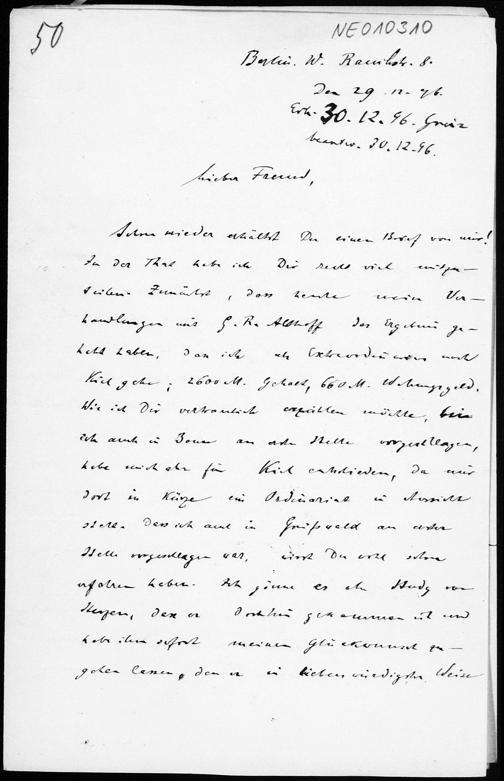 50
NE010310
Berlin. W. Rankestr. 8.
Den 29. 12. 96.
Erh. 30.12.96. Greiz
beantw. 30.12.96.
Lieber Freund,
Schon wieder erhältst Du einen Brief von mir!
In der That habe ich Dir recht viel mitzu-
teilen. Zunächst, dass heute meine Ver-
handlungen mit G. Ra. Althoff das Ergebnis ge-
habt haben, dass ich als Extraordinarius nach
Kiel gehe; 2600 M. Gehalt, 660 M. Wohnungsgeld.
Wie ich Dir vertraulich erzählen möchte, bin
ich auch in Bonn an erster Stelle vorgeschlagen,
habe mich aber für Kiel entschieden, da mir
dort in Kürze ein Ordinariat in Aussicht
steht. Dass ich auch in Greifswald an erster
Stelle vorgeschlagen war, wirst Du wohl schon
erfahren haben. Ich gönne es aber Study von
Herzen, dass er dorthin gekommen ist und
habe ihm sofort meinen Glückwunsch zu-
gehen lassen, den er in liebenswürdigster Weise